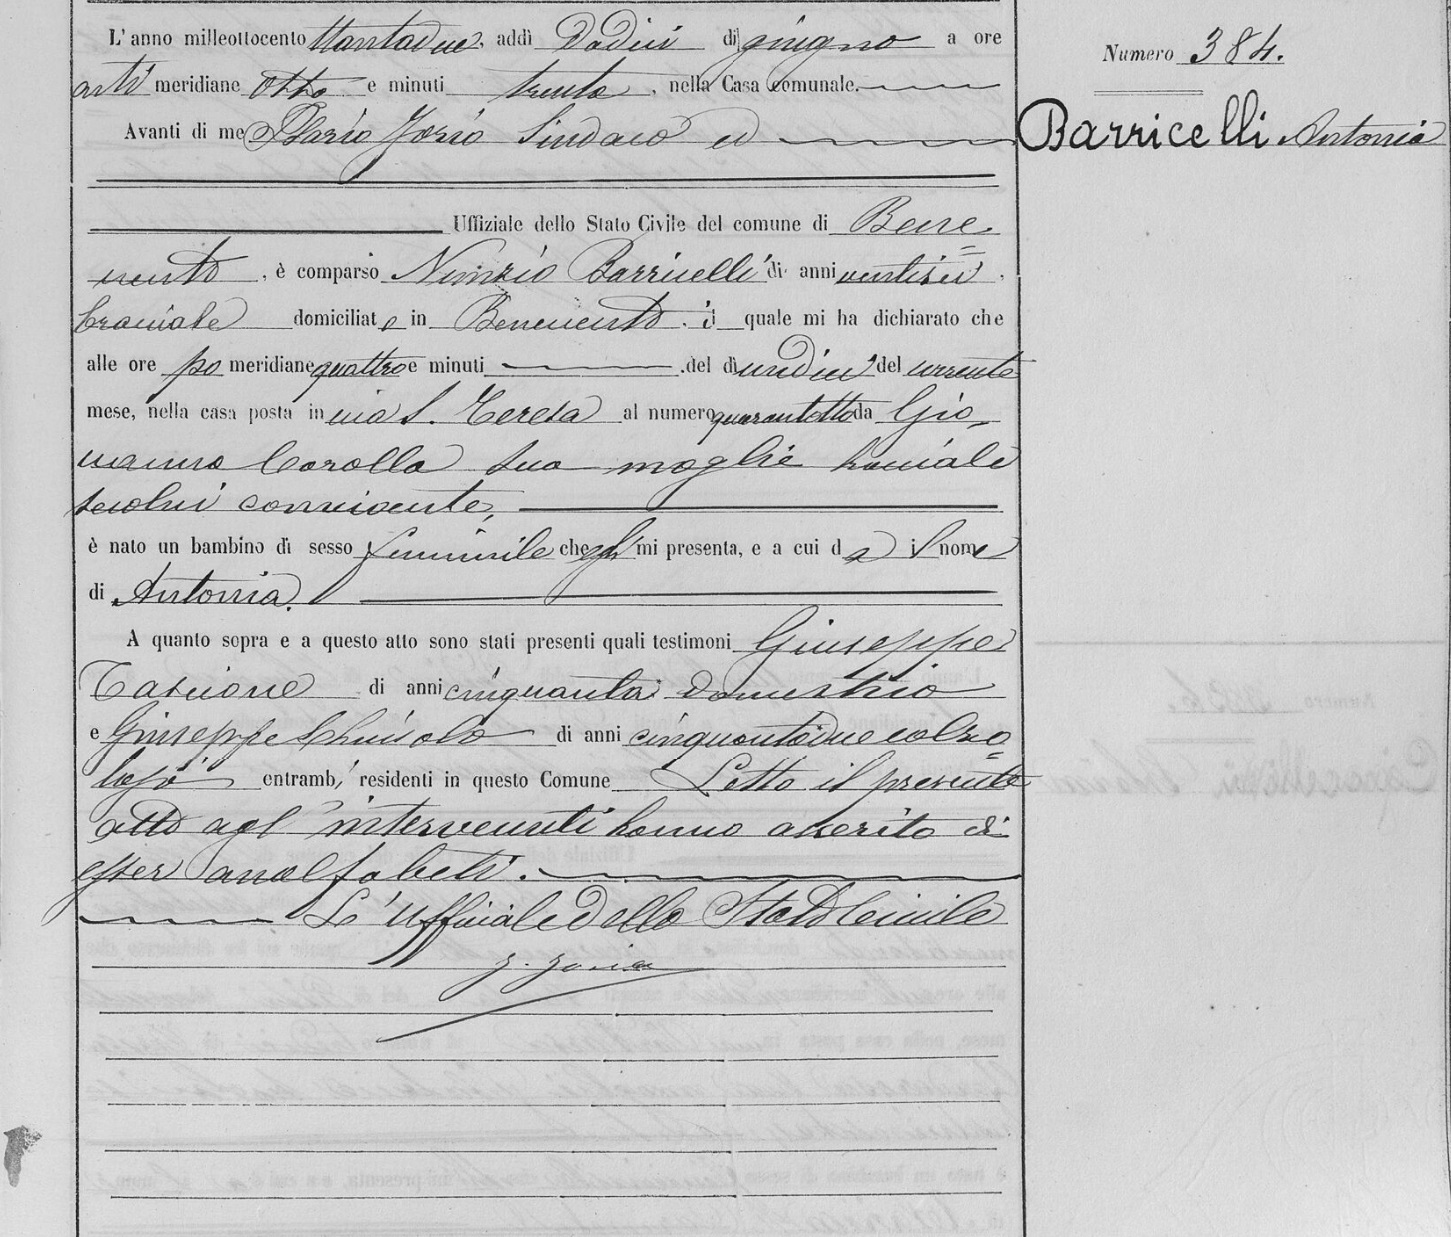 L'anno milleottocento ottantadue, addì Dodici di giugno a ore
anti meridiane otto e minuti trenta, nella Casa comunale.
Numero 384.
Barricelli Antonia
Avanti di me Ilario Jorio Sindaco ed
Uffiziale dello Stato Civile del comune di Bene=
vento, è comparso Nunzio Barricelli di anni ventisei,
bracciale domiciliato in Benevento. il quale mi ha dichiarato che
alle ore po meridiane quattro e minuti del dì undici del corrente
mese, nella casa posta in via S. Teresa al numero quarantotto da Gio-
vanna Corolla sua moglie bracciale
secolui convivente,
è nato un bambino di sesso femminile che egli mi presenta, e a cui dà il nome
di Antonia.
A quanto sopra e a questo atto sono stati presenti quali testimoni Giuseppe
di anni cinquanta domestico
e Giuseppe di anni cinquantadue calzo=
lajo entrambi residenti in questo Comune Letto il presente
atto agl'intervenuti hanno asserito di
esser analfabeti.
L'Uffiziale dello Stato Civile
I. Jorio